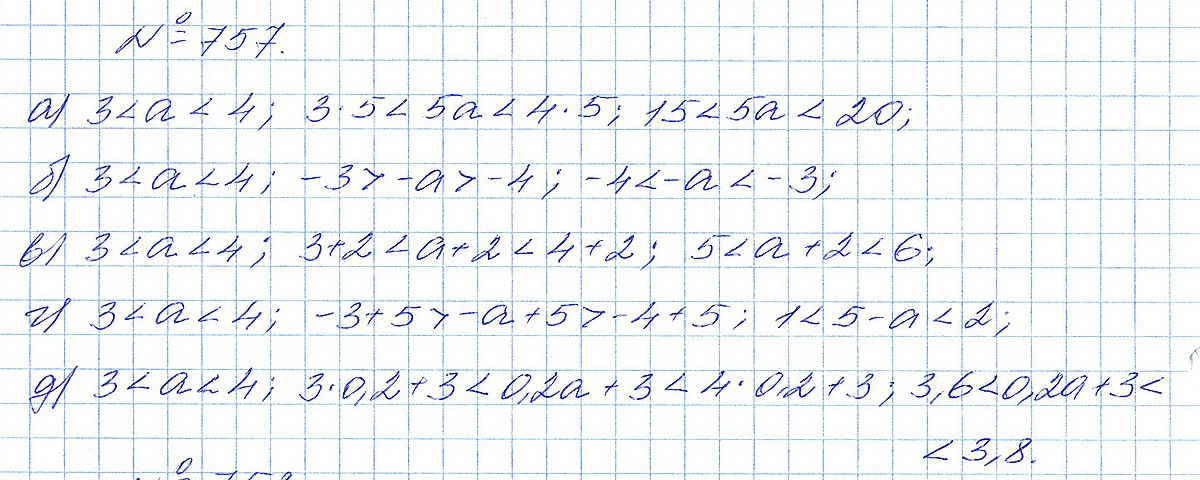 № 757.
а) 3 < a < 4; 3·5 < 5a < 4·5; 15 < 5a < 20;
б) 3 < a < 4; -3 > -a > -4; -4 < -a < -3;
в) 3 < a < 4; 3+2 < a+2 < 4+2; 5 < a+2 < 6;
г) 3 < a < 4; -3+5 > -a+5 > -4+5; 1 < 5-a < 2;
д) 3 < a < 4; 3·0,2+3 < 0,2a+3 < 4·0,2+3; 3,6 < 0,2a+3 <
< 3,8.